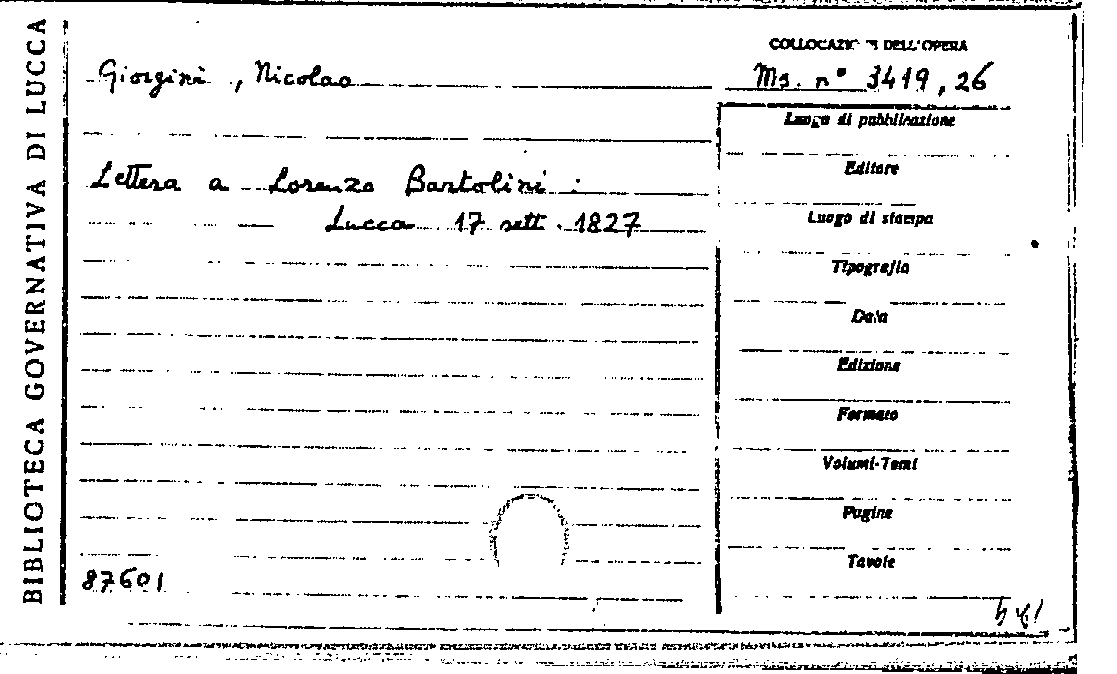 BIBLIOTECA GOVERNATIVA DI LUCCA
Giorgini, Nicolao
Lettera a Lorenzo Bartolini :
Lucca 17 sett. 1827
87601
COLLOCAZIONE DELL'OPERA
Ms. n° 3419, 26
Luogo di pubblicazione
Editore
Luogo di stampa
Tipografia
Data
Edizione
Formato
Volumi-Tomi
Pagine
Tavole